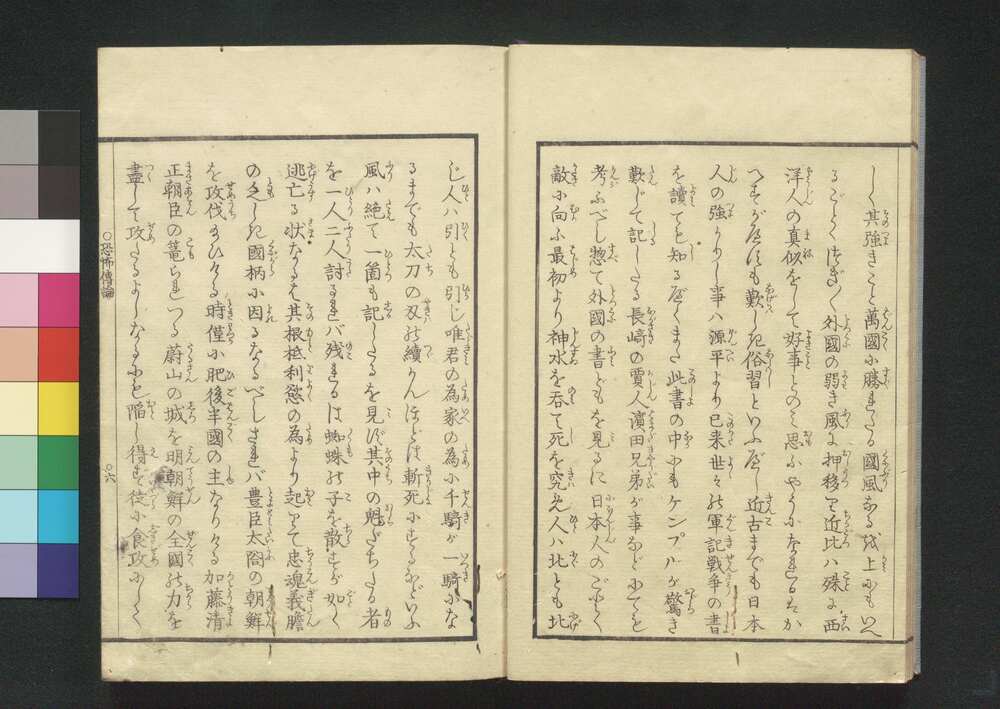 しく其強きこと萬國に勝れたる國風なるを上にもいへ
るごとくつぎ〳〵外國の弱き風に押移りて近比ハ殊に西
洋人の真似をして好事とのミ思ふやうになれるハおか
へすがへすも歎しき俗習といふべし近古までも日本
人の強かりし事ハ源平より已来世々の軍記戦争の書
を讀ても知るべくまた此書の中にもケンプルが驚き
歎じて記したる長崎の賈人濱田兄弟が事などにてを
考ふべし惣て外國の書どもを見るに日本人のごとく
敵に向ふ最初より神水を呑て死を究め人ハ北とも北
じ人ハ引とも引じ唯君の為家の為に千騎が一騎にな
るまでも太刀の刄の續かんほどは斬死にするなどいふ
風ハ絶て一箇も記したるを見ず其中の魁だちたる者
を一人二人討るれバ残れるは蜘蛛の子を散すが如く
逃亡る状なるは其根柢利慾の為より起りて忠魂義膽
の乏しき國柄に因るなるべしされバ豊臣太閤の朝鮮
を攻伐のひける時僅に肥後半國の主なりける加藤清
正朝臣の篭られつる蔚山の城を明朝鮮の全國の力を
盡して攻たるよしなるにも陥し得ず徒に食攻にしく
○恐怖傳論
○六